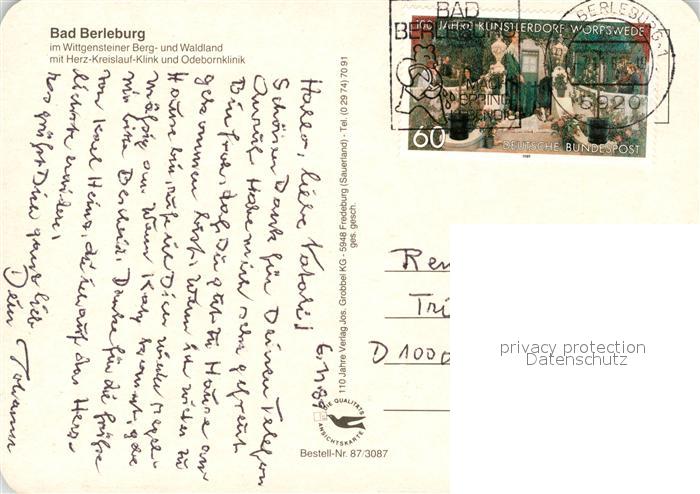 Bad Berleburg
im Wittgensteiner Berg- und Waldland
mit Herz-Kreislauf-Klink und Odebornklinik
6.11.89
Hallo, liebe
Schönen Dank für Deinen Telefon
Anruf. Habe mich sehr gefreut
Bin froh, daß Du gut zu Hause an
gekommen bist. Wenn ich wieder zu
Hause bin, rufe ich Dich wieder regel-
mäßig an. Wenn kommst, gebe
mir bitte Bescheid. Danke für die Grüße
von Karl Heinz, die ich auf das Herz-
lichste
Es grüßt Dich ganz lieb
Dein Johannes
110 Jahre Verlag Jos. Grobbel KG - 5948 Fredeburg (Sauerland) - Tel. (0 29 74) 70 91
ges. gesch.
DIE QUALITÄTS
ANSICHTSKARTE
Bestell-Nr. 87/3087
BAD
BERLEBURG
BERLEBURG 1
5920
100 JAHRE KÜNSTLERDORF WORPSWEDE
60
DEUTSCHE BUNDESPOST
1989
Ren
Tri
D 1000
privacy protection
Datenschutz